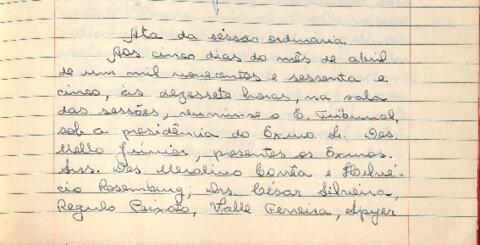 Ata da sessão ordinária
Aos cinco dias do mês de abril
de um mil novecentos e sessenta e
cinco, às dezessete horas, na sala
das sessões, reuniu-se o E. Tribunal,
sob a presidência do Exmo Sr. Des.
Mello Júnior, presentes os Exmos.
Srs. Des. Merolino Corrêa e Helvé-
cio Rosemburg; Drs. César Silveira,
Regulo Peixoto, Valle Ferreira, Spyer